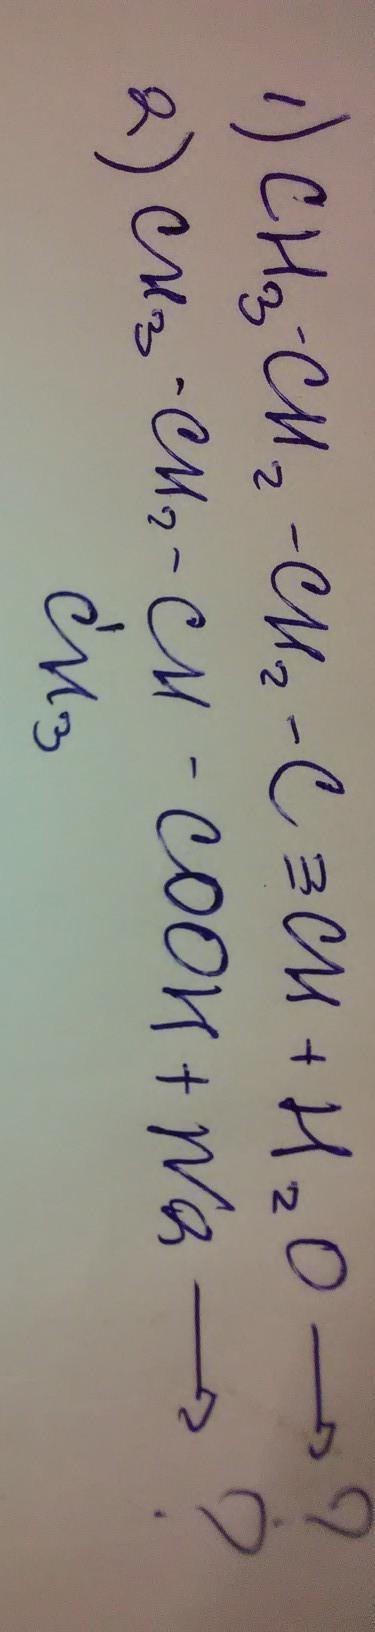 1) CH3-CH2-CH2-C≡CH + H2O → ?
2) CH3-CH2-CH-COOH + Na → ?
CH3